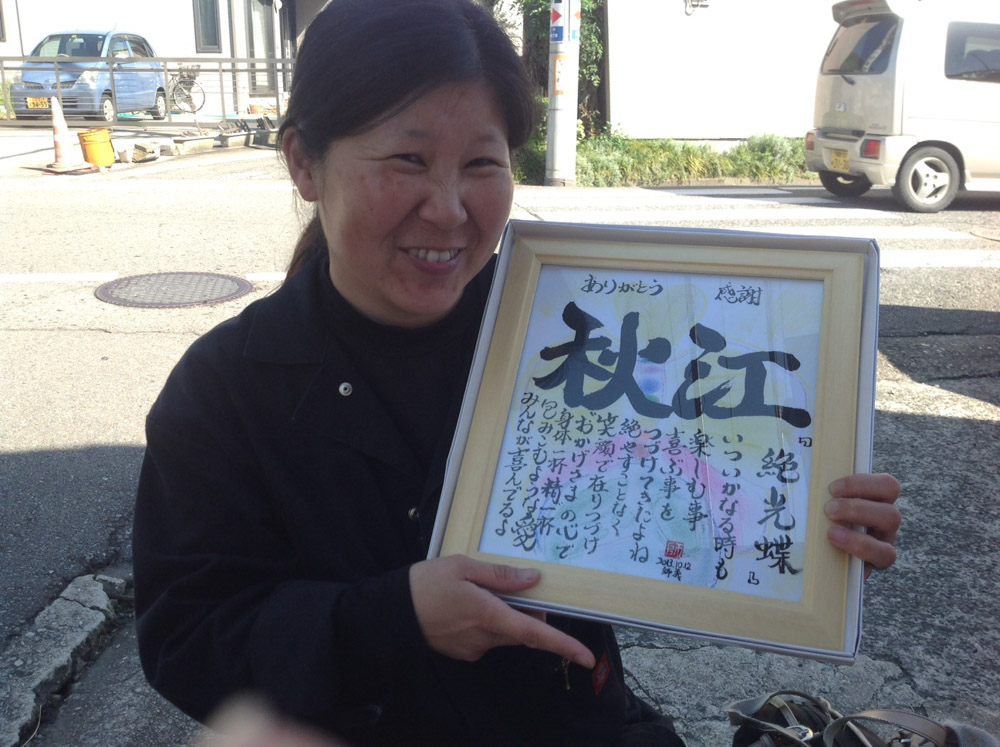 ありがとう
感謝
秋江
『絶光蝶』
いついかなる時も
楽しむ事
喜ぶ事を
つづけてきたよね
絶やすことなく
笑顔で在りつづけ
おかげさまの心で
身体一杯精一杯
包みこむような愛
みんなが喜んでるよ
2013.10.12